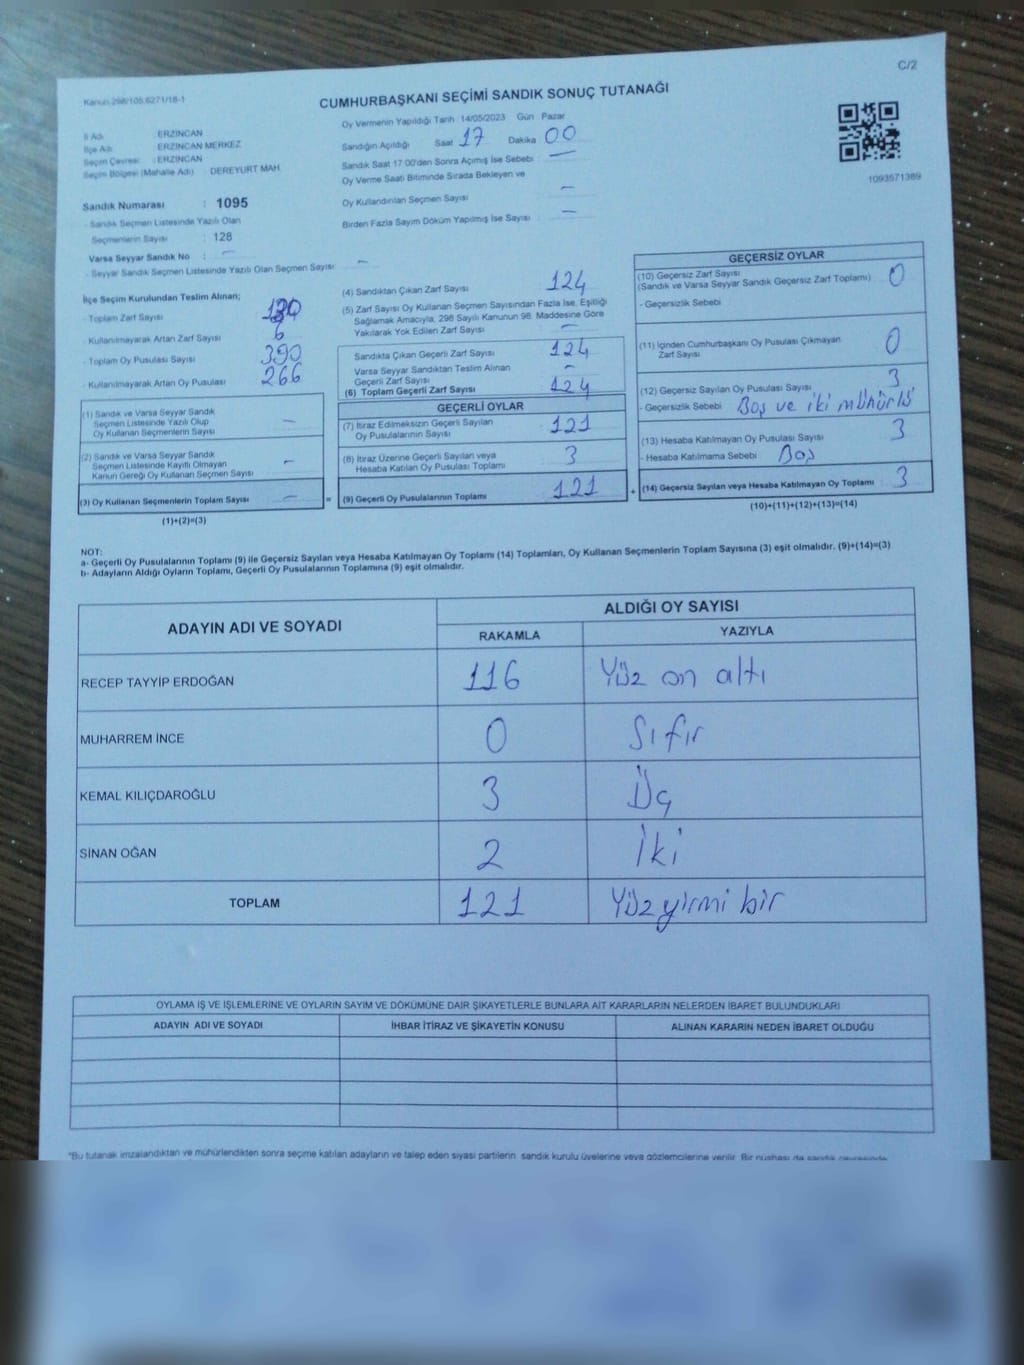 C/2
Kanun 298/105,6271/18-1
CUMHURBAŞKANI SEÇİMİ SANDIK SONUÇ TUTANAĞI
İl Adı : ERZİNCAN
İlçe Adı : ERZİNCAN MERKEZ
Seçim Çevresi : ERZİNCAN
Seçim Bölgesi (Mahalle Adı) : DEREYURT MAH.
Oy Vermenin Yapıldığı Tarih :14/05/2023 Gün Pazar
Sandığın Açıldığı Saat 17 Dakika 00
Sandık Saat 17:00'den Sonra Açımış İse Sebebi : —
Oy Verme Saati Bitiminde Sırada Bekleyen ve
Oy Kullandırılan Seçmen Sayısı —
Birden Fazla Sayım Döküm Yapılmış İse Sayısı : —
1093571389
Sandık Numarası : 1095
- Sandık Seçmen Listesinde Yazılı Olan
Seçmenlerin Sayısı : 128
Varsa Seyyar Sandık No : —
- Seyyar Sandık Seçmen Listesinde Yazılı Olan Seçmen Sayısı —
İlçe Seçim Kurulundan Teslim Alınan;
- Toplam Zarf Sayısı
- Kullanılmayarak Artan Zarf Sayısı 6
- Toplam Oy Pusulası Sayısı 390
- Kullanılmayarak Artan Oy Pusulası 266
(1) Sandık ve Varsa Seyyar Sandık
Seçmen Listesinde Yazılı Olup
Oy Kullanan Seçmenlerin Sayısı —
(2) Sandık ve Varsa Seyyar Sandık
Seçmen Listesinde Kayıtlı Olmayan
Kanun Gereği Oy Kullanan Seçmen Sayısı —
(3) Oy Kullanan Seçmenlerin Toplam Sayısı —
(1)+(2)=(3)
(4) Sandıktan Çıkan Zarf Sayısı 124
(5) Zarf Sayısı Oy Kullanan Seçmen Sayısından Fazla İse, Eşitliği
Sağlamak Amacıyla, 298 Sayılı Kanunun 98. Maddesine Göre
Yakılarak Yok Edilen Zarf Sayısı —
Sandıkta Çıkan Geçerli Zarf Sayısı 124
Varsa Seyyar Sandıktan Teslim Alınan
Geçerli Zarf Sayısı —
(6) Toplam Geçerli Zarf Sayısı 124
GEÇERLİ OYLAR
(7) İtiraz Edilmeksizin Geçerli Sayılan
Oy Pusulalarının Sayısı 121
(8) İtiraz Üzerine Geçerli Sayılan veya
Hesaba Katılan Oy Pusulası Toplamı 3
= (9) Geçerli Oy Pusulalarının Toplamı 121 +
GEÇERSİZ OYLAR
(10) Geçersiz Zarf Sayısı
(Sandık ve Varsa Seyyar Sandık Geçersiz Zarf Toplamı) 0
- Geçersizlik Sebebi
(11) İçinden Cumhurbaşkanı Oy Pusulası Çıkmayan
Zarf Sayısı 0
(12) Geçersiz Sayılan Oy Pusulası Sayısı 3
- Geçersizlik Sebebi Boş ve iki mühürlü
(13) Hesaba Katılmayan Oy Pusulası Sayısı 3
- Hesaba Katılmama Sebebi Boş
(14) Geçersiz Sayılan veya Hesaba Katılmayan Oy Toplamı 3
(10)+(11)+(12)+(13)=(14)
NOT:
a- Geçerli Oy Pusulalarının Toplamı (9) ile Geçersiz Sayılan veya Hesaba Katılmayan Oy Toplamı (14) Toplamları, Oy Kullanan Seçmenlerin Toplam Sayısına (3) eşit olmalıdır. (9)+(14)=(3)
b- Adayların Aldığı Oyların Toplamı, Geçerli Oy Pusulalarının Toplamına (9) eşit olmalıdır.
ADAYIN ADI VE SOYADI ALDIĞI OY SAYISI
RAKAMLA YAZIYLA
RECEP TAYYİP ERDOĞAN 116 Yüz on altı
MUHARREM İNCE 0 Sıfır
KEMAL KILIÇDAROĞLU 3 Üç
SİNAN OĞAN 2 İki
TOPLAM 121 Yüz yirmi bir
OYLAMA İŞ VE İŞLEMLERİNE VE OYLARIN SAYIM VE DÖKÜMÜNE DAİR ŞİKAYETLERLE BUNLARA AİT KARARLARIN NELERDEN İBARET BULUNDUKLARI
ADAYIN ADI VE SOYADI İHBAR İTİRAZ VE ŞİKAYETİN KONUSU ALINAN KARARIN NEDEN İBARET OLDUĞU
"Bu tutanak imzalandıktan ve mühürlendikten sonra seçime katılan adayların ve talep eden siyasi partilerin sandık kurulu üyelerine veya gözlemcilerine verilir. Bir nüshası da sandık çevresinde